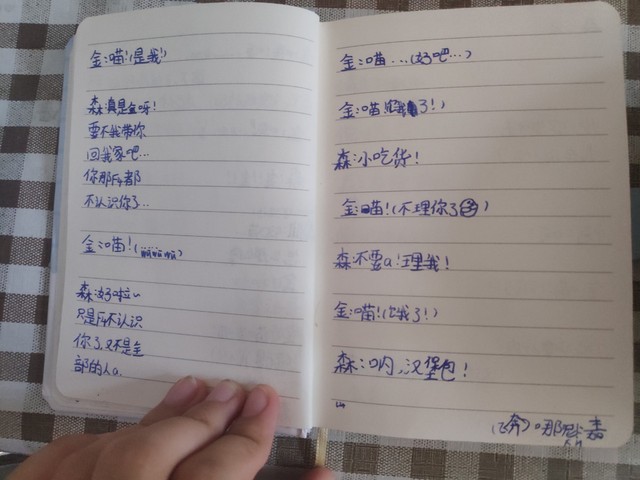 金:喵!(是我!)
森:真是金呀!
要不我带你
回我家吧…
你那F4都
不认识你了…
金:喵!(啊啊啊)
森:好啦~
只是F4不认识
你了,又不是全
部的人a.
金:喵…(好吧…)
金:喵!(饿了!)
森:小吃货!
金:喵!(不理你了)
森:不要a!理我!
金:喵!(饿了!)
森:呐,汉堡包!